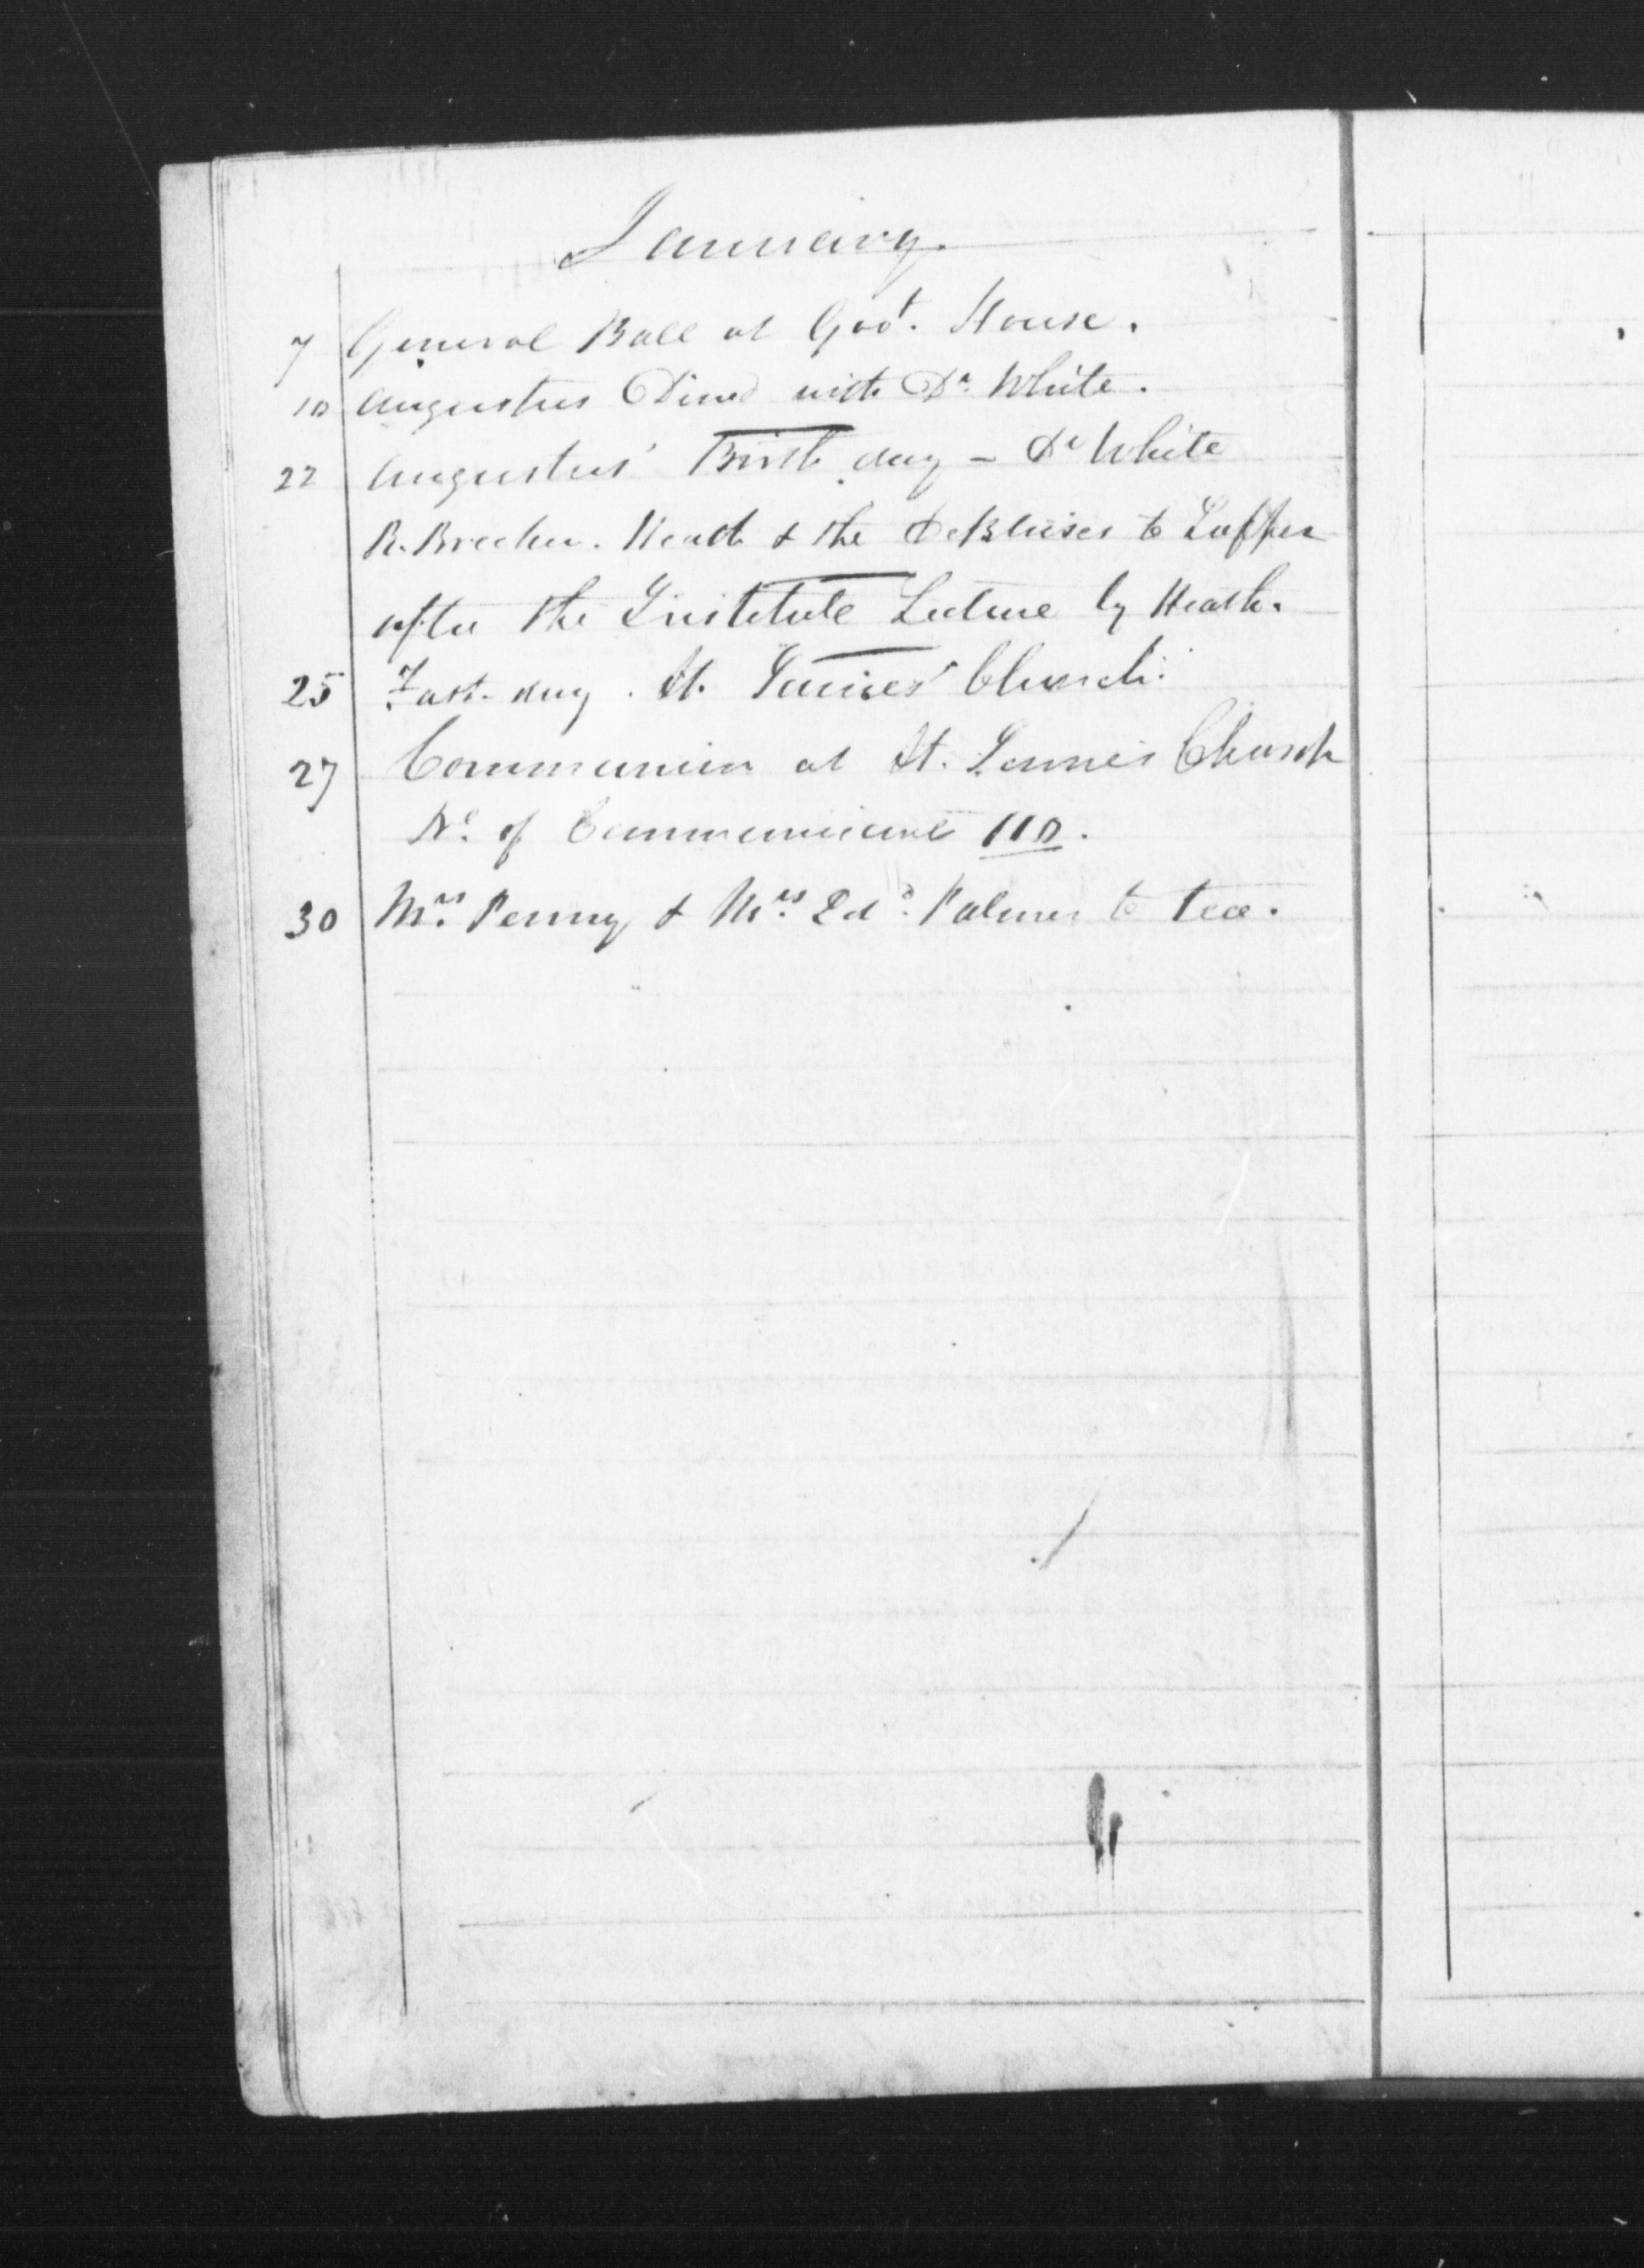 January.
7 General Ball at Govt. House.
10 Augustus Dined with Dr. White.
22 Augustus' Birth day - Dr White
R. Brecken. Heath & the DeBlois's to Supper
after the Institute Lecture by Heath.
25 Fast-day. St. James' Church.
27 Communion at St. James Church
No. of Communicants 110.
30 Mrs. Penny & Mrs. Edd. Palmer to tea.